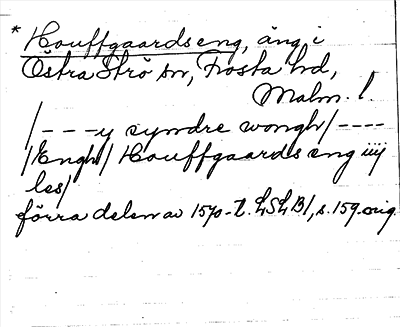 * Houffgaardseng, äng i
Östra Strö sn, Frosta hd,
Malm. l.
/---y syndre wongh/----
/Engh/ Houffgaards eng iiij
les/
förra delen av 1570-t. LSLB1, s. 159. orig.